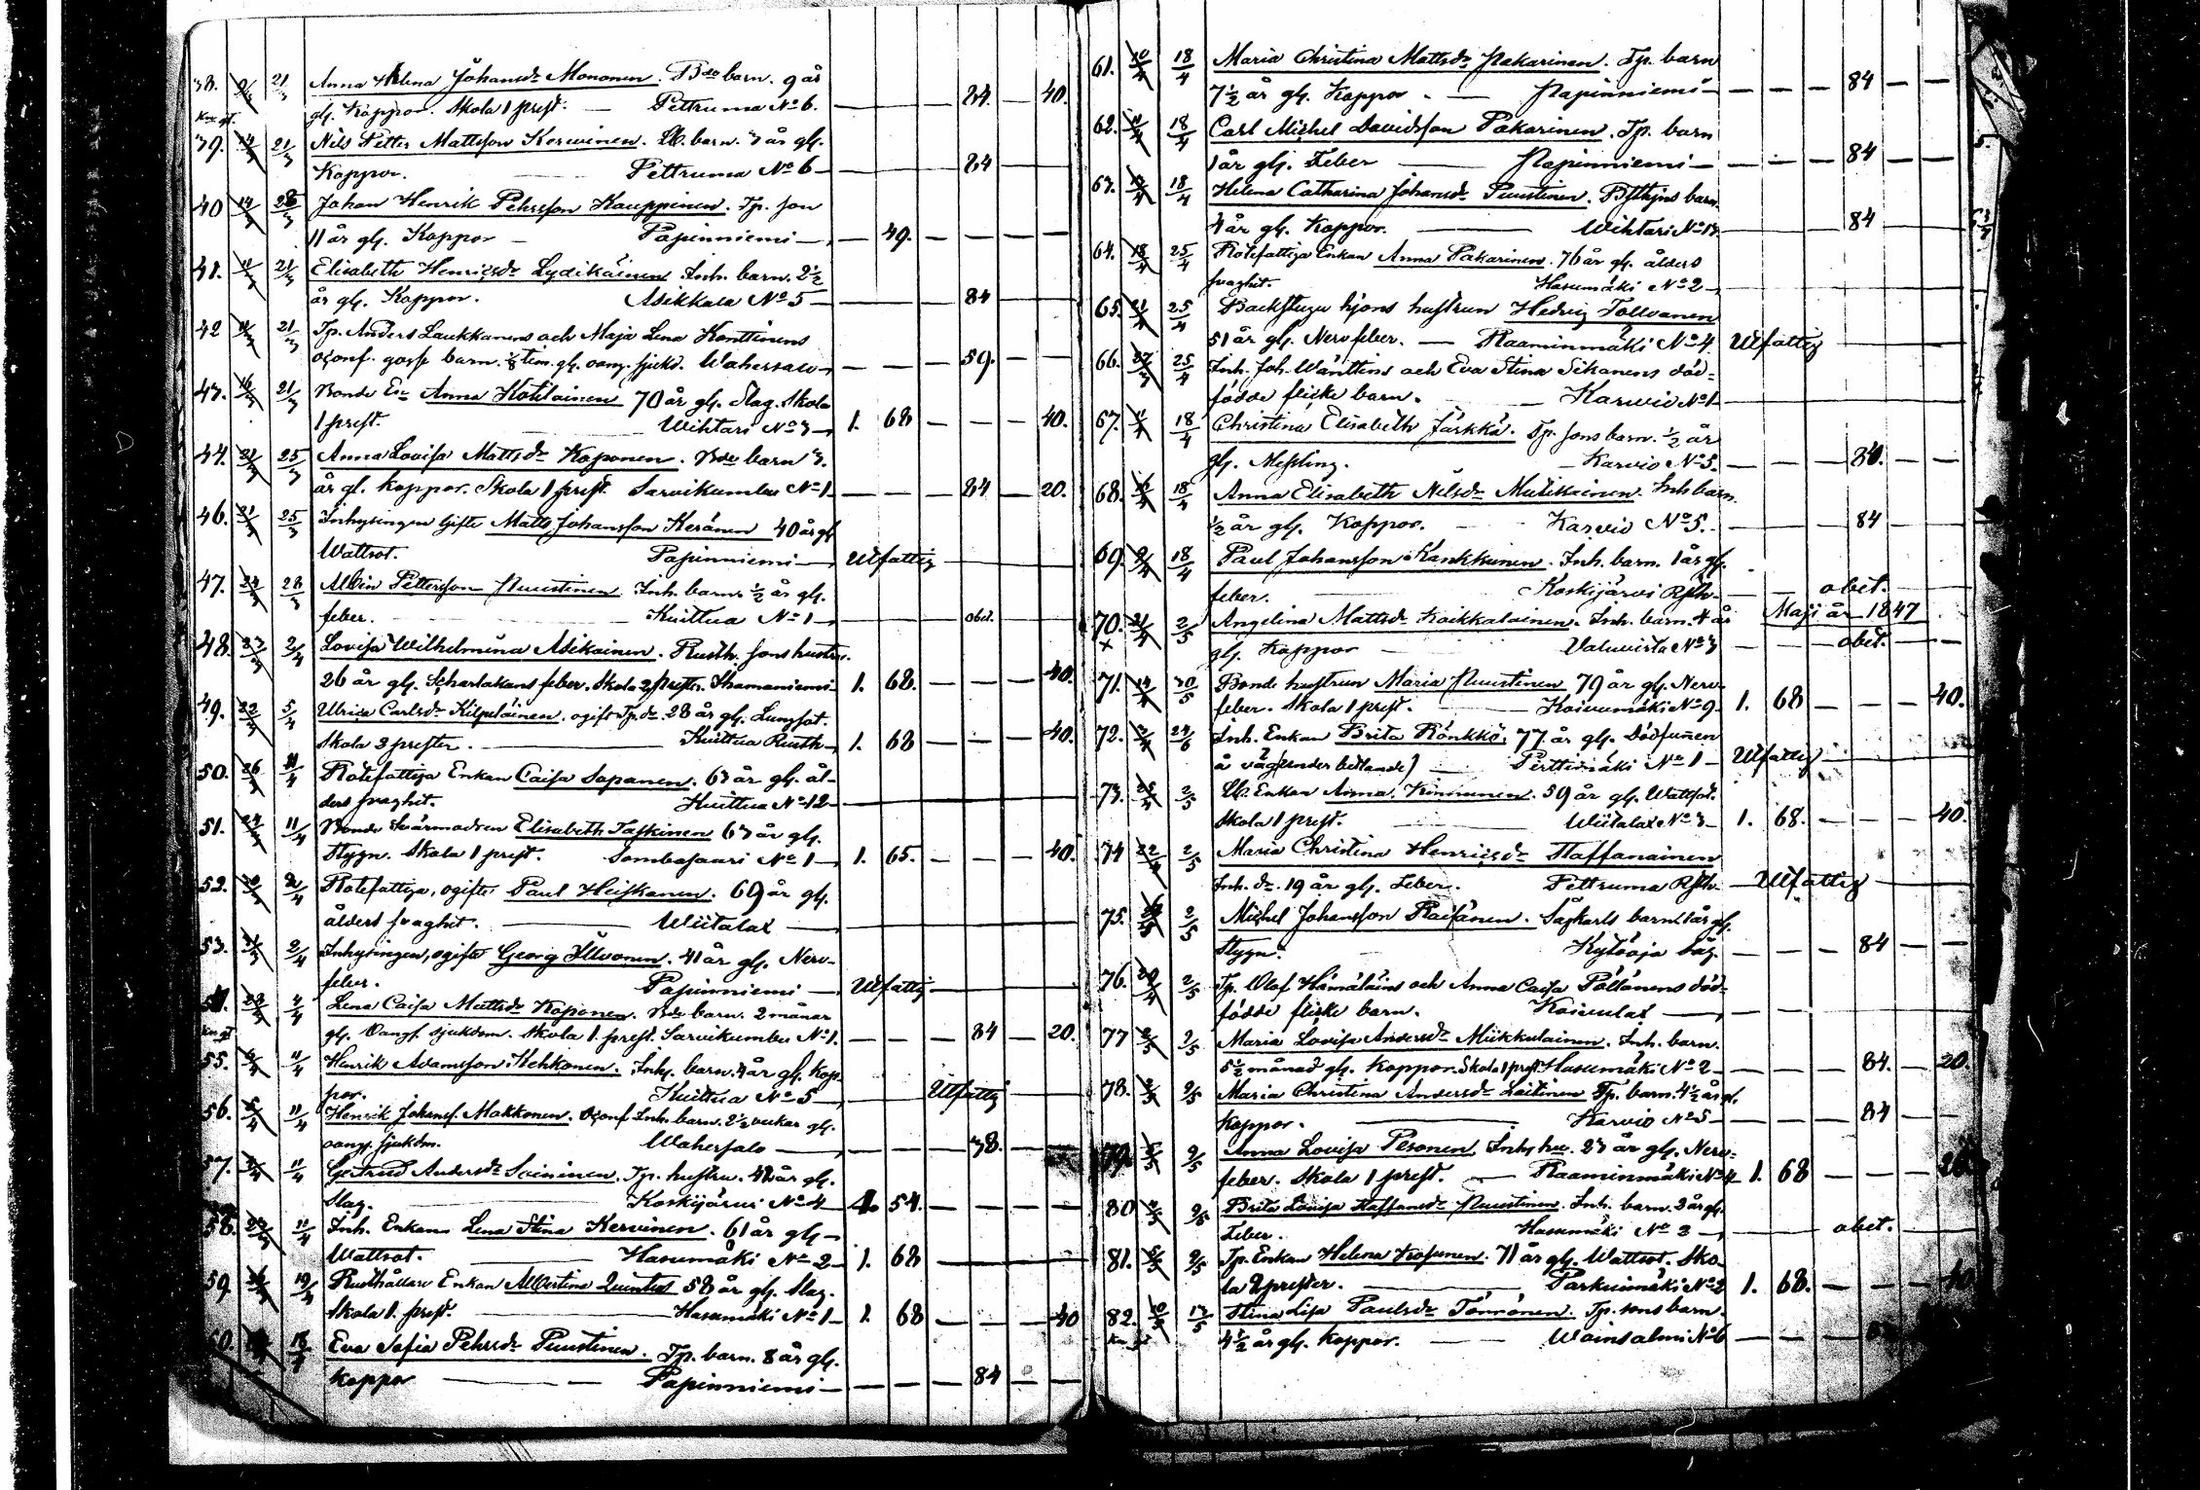 38. 21/3 Anna Helena Johansdr Mononen. Bde barn. 9 år
gl. Koppor. Skola 1 prest. — Pettruma No 6. — 84 — 40.
39. 21/3 Nils Petter Mattsson Kerwinen. barn. 3 år gl.
Koppor. — Pettruma No 6 — 84
40 14/3 28/3 Johan Henrik Pehrsson Kauppinen. Tp. son
11 år gl. Koppor — Papinniemi — 49. — — — —
41. 21/3 Elisabeth Henricsdr Lydikäinen Inh. barn. 2½
år gl. Koppor. Asikkala No 5 — 84
42 21/3 Tp. Anders Laukkanens och Maja Lena Konttinens
oconf. gosse barn. tim. gl. oang. sjukd. Wahersalo — — — 59. — —
43. 16/3 21/3 Bonde Anna Kotilainen 70 år gl. Slag. Skola
1 prest. — Wihtari No 3 — 1. 68 — — — 40.
44. 21/3 25/3 Anna Lovisa Mattsdr Koponen. Bde barn 3.
år gl. koppor. Skola 1 prest. Sarvikumbu No 1 — — — 84 — 20.
46. 21/3 25/3 Inhysingen Gifte Matts Johansson Keränen 40 år gl
Wattsot. Papinniemi — Utfattig
47. 24/3 28/3 Albin Pettersson Puustinen. Inh. barn ½ år gl.
feber. — Kuittua No 1 — obet.
48. 27/3 2/4 Lovisa Wilhelmina Asikainen. Rusth. sons hustru.
26 år gl. Scharlakans feber. Skola 2 prester. Thamaniemi — 1. 68. — — — 40.
49. 22/3 5/4 Ulrica Carlsdr Kilpeläinen, ogift Tp. dr 28 år gl. Lungsot.
Skola 3 prester. — Kuittua Rusth — 1. 68 — — — 40.
50. 26/3 11/4 Rotefattiga Enkan Caisa Sapanen. 63 år gl. ål-
ders svaghet. Kuittua No 12
51. 24/3 11/4 Bonde Svärmodren Elisabeth Taskinen 63 år gl.
Stygn. Skola 1 prest. Sombasaari No 1 — 1. 65. — — — 40.
52. 2/4 Rotefattiga, ogifte Paul Heiskanen. 69 år gl.
ålders svaghet. — Wiitalax
53. 2/4 Inhysingen, ogifte Georg Illvonen. 41 år gl. Nerv-
feber. Papinniemi — Utfattig
54. 28/3 4/4 Lena Caisa Mattsdr Koponen. Bde barn. 2 månar
gl. Oangf. sjukdom. Skola 1. prest. Sarvikumbu No 1. — — — 84 — 20.
55. 11/4 Henrik Adamsson Hehkonen. Inh. barn. 4 år gl. kop-
por. Kuittua No 5 — Utfattig
56. 5/4 11/4 Henrik Johanss. Makkonen. Oconf. Inh. barn. 2½ veckar gl.
oang. sjukdm. Wahersalo — — — 38. — —
57. 11/4 Gertrud Andersdr Soininen. Tp. hustru. 48 år gl.
Slag. Koskijärvi No 4 — 1. 54. — — — —
58. 11/4 Inh. Enkan Lena Stina Kervinen. 61 år gl —
Wattsot. — Hasumäki No 2 — 1. 68
59. 19/4 Rusthållare Enkan Albertina Quintus 58 år gl. Slag.
Skola 1. prest. — Hasumäki No 1 — 1. 68 — — — 40
60. 18/4 Eva Sofia Pehrsdr Puustinen. Tp. barn. 8 år gl.
koppor — Papinniemi — — — — 84 — —
61. 10/4 18/4 Maria Christina Mattsdr Pakarinen. Tp. barn
7½ år gl. Koppor — Papinniemi — — — — 84 — —
62. 11/4 18/4 Carl Michel Davidsson Pakarinen. Tp. barn
1 år gl. Feber — Papinniemi — — — — 84 — —
63. 18/4 Helena Catharina Johansdr Puustinen. Bsthjns barn
4 år gl. Koppor. — Wihtari No 13. — 84
64. 18/4 25/4 Rotefattiga Enkan Anna Pakarinen. 76 år gl. ålders
svaghet. Hasumäki No 2
65. 21/4 25/4 Backstugu hjons hustrun Hedvig Tollvanen
51 år gl. Nervfeber. — Raaminmäki No 4 Utfattig
66. 27/3 25/4 Inh. Joh. Wänttins och Eva Stina Sikanens död-
födde flicke barn. — Karvio No 1
67. 11/4 18/4 Christina Elisabeth Järkkä. Tp. sons barn. ½ år
gl. Messling. — Karvio No 5. — — — 84. — —
68. 18/4 Anna Elisabeth Nilsdr Mutikainen. Inh barn.
½ år gl. Koppor. — Karvio No 5. — — — 84 — —
69. 9/4 18/4 Paul Johansson Kankkunen. Inh. barn. 1 år gl.
feber. — Koskijärvi Rsth. — obet.
Maji år 1847
70. 21/4 2/5 Angelina Mattsdr Koikkalainen. Inh. barn. 4 år
gl. Koppor — Valuvirta No 3 — obet. —
71. 14/4 30/5 Bonde hustrun Maria Puustinen 79 år gl. Nerv-
feber. Skola 1 prest. — Koivumäki No 9 — 1. 68 — — — 40.
72. 24/6 Inh. Enkan Brita Rönkkö. 77 år gl. Dödfunen
å väg (under bettlande) — Perttimäki No 1 — Utfattig
73. 2/5 Enkan Anna Kinnunen. 59 år gl. Wattsot.
Skola 1 prest. — Wiitalax No 3 — 1. 68. — — — 40.
74 22/4 2/5 Maria Christina Henricsdr Staffanainen
Inh. dr. 19 år gl. Feber. Pettruma Rsth. — Utfattig
75. 2/5 Michel Johansson Raisänen. Sågkarls barn. 1 år gl.
Stygn. Kytöoja såg. — — — 84 — —
76. 20/4 2/5 Tp. Olof Hämäläins och Anna Caisa Pöllänens död-
födde flicke barn. Koivulax —
77 2/5 Maria Lovisa Andersdr Miikkulainen. Inh. barn.
5½ månad gl. Koppor. Skola 1 prest. Hasumäki No 2 — — — 84. — 20.
78. 9/5 Maria Christina Andersdr Laitinen Tp. barn. 4½ år gl.
Koppor. — Karvio No 5 — — — 84 — —
79. 9/5 Anna Lovisa Pesonen. Inh. hu. 23 år gl. Nerv-
feber. Skola 1 prest. — Raaminmäki No 4 — 1. 68 — —
80 9/5 Brita Lovisa Staffansdr Puustinen. Inh. barn. 3 år gl.
Feber. Hasumäki No 3 — obet. —
81. 9/5 Tp. Enkan Helena Kosunen. 71 år gl. Wattsot. Sko-
la 2 prester. — Parkuimäki No 2 1. 68. — — 40
82. 10/5 Stina Lisa Paulsdr Tönnönen. Tp. sons barn.
4½ år gl. koppor. — Wainsalmi No 6 — — —